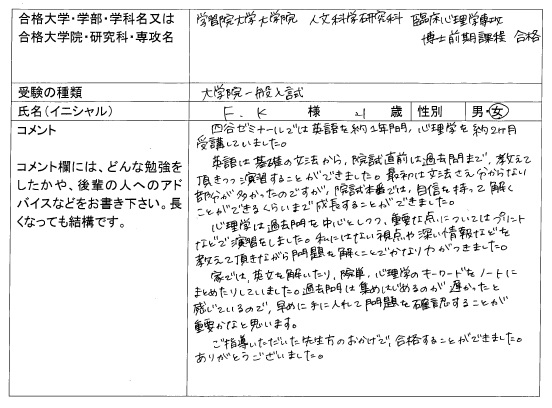 合格大学・学部・学科名又は
合格大学院・研究科・専攻名
学習院大学大学院 人文科学研究科 臨床心理学専攻
博士前期課程 合格
受験の種類
大学院一般入試
氏名(イニシャル)
F.K 様 21 歳 性別 男・女
コメント
コメント欄には、どんな勉強を
したかや、後輩の人へのアド
バイスなどをお書き下さい。長
くなっても結構です。
四谷ゼミナールでは英語を約1年間、心理学を約2ヶ月
受講していました。
英語は基礎の文法から、院試直前は過去問まで、教えて
頂きつつ演習することができました。最初は文法さえ分からない
部分が多かったのですが、院試本番では、自信を持って解く
ことができるくらいまで成長することができました。
心理学は過去問を中心としつつ、重要な点についてはプリント
などで演習をしました。私にはない視点や深い情報などを
教えて頂きながら問題を解くことでかなり力がつきました。
家では、英文を解いたり、院単、心理学のキーワードをノートに
まとめたりしていました。過去問は集めはじめるのが遅かったと
感じているので、早めに手に入れて問題を確認することが
重要かなと思います。
ご指導いただいた先生方のおかげで、合格することができました。
ありがとうございました。